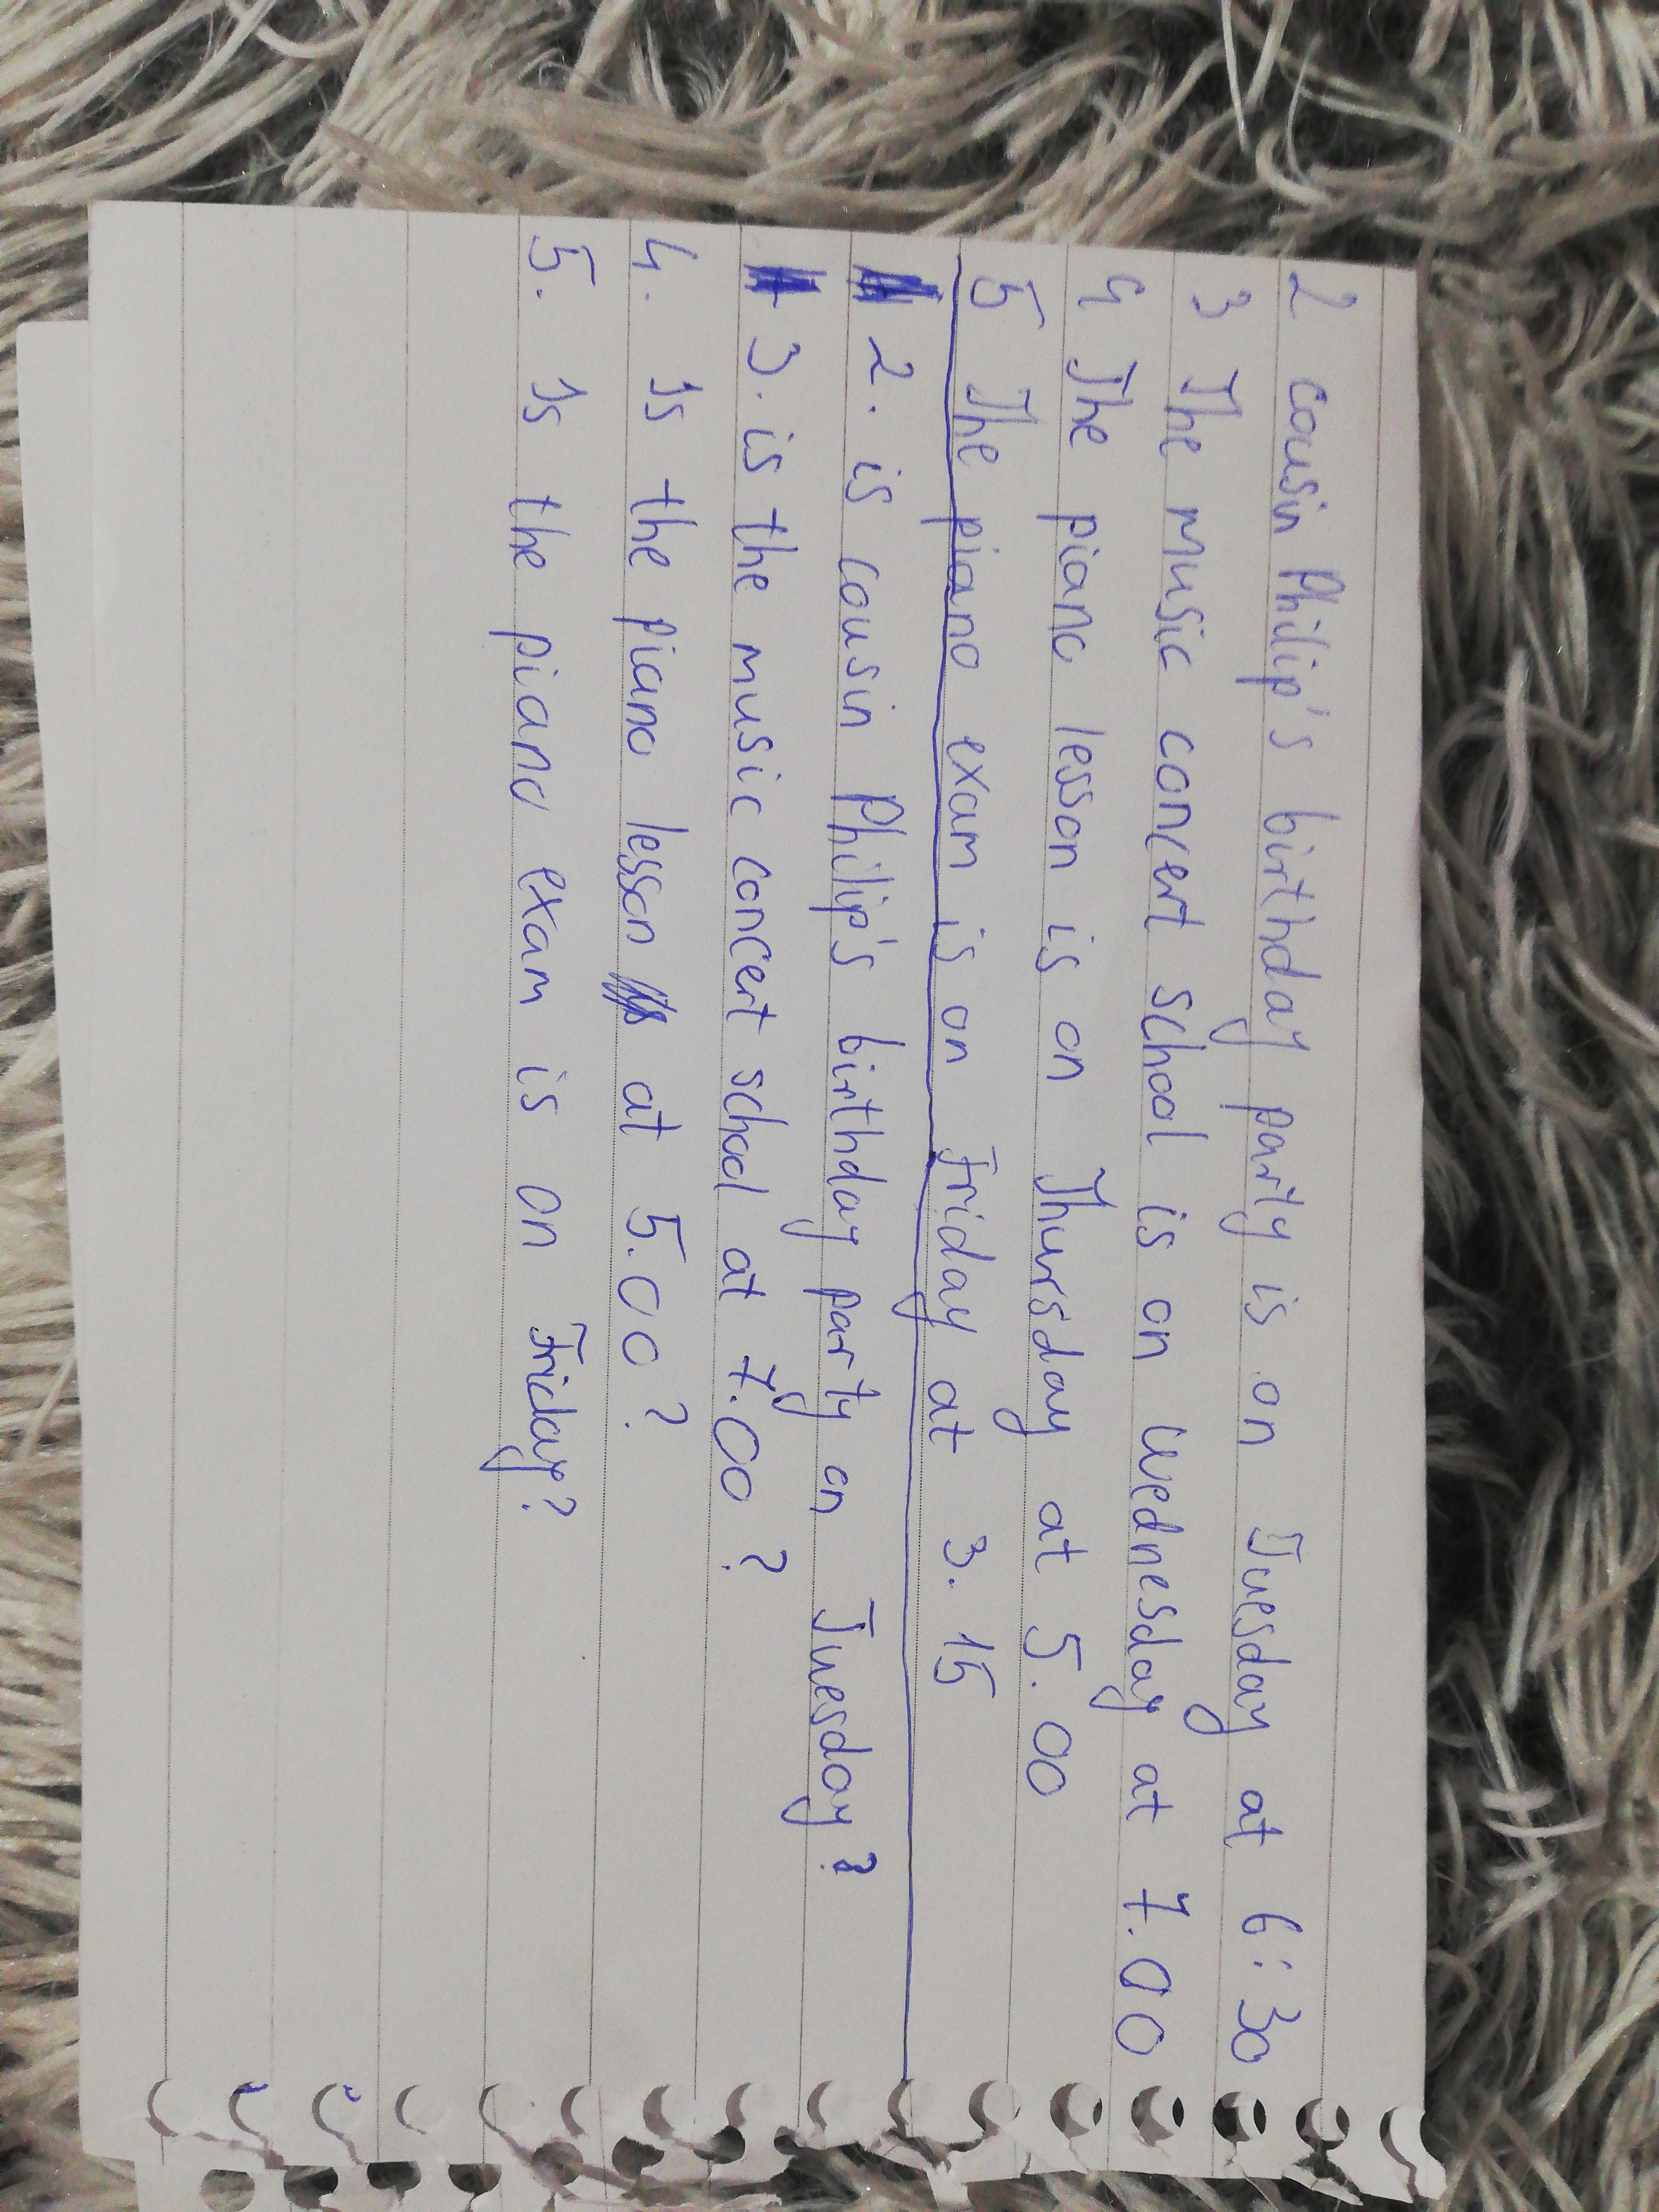 2 cousin Philip's birthday party is on Tuesday at 6:30
3 The music concert school is on Wednesday at 7.00
4 The piano lesson is on Thursday at 5.00
5 The piano exam is on Friday at 3.15
2. is cousin Philip's birthday party on Tuesday?
3. is the music concert school at 7.00?
4. Is the piano lesson at 5.00?
5. Is the piano exam is on Friday?